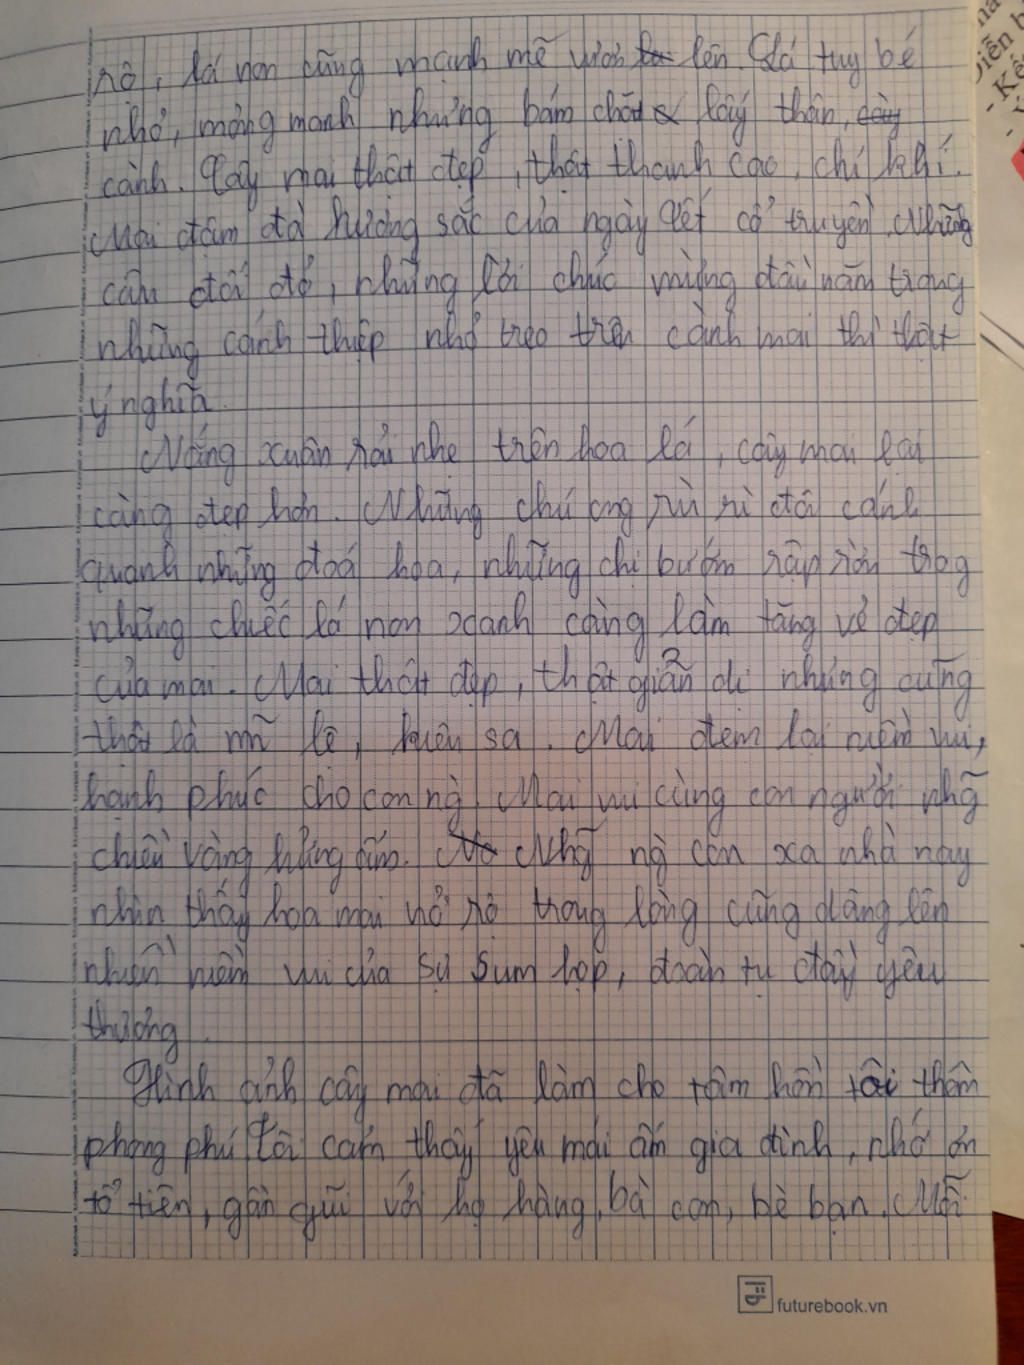 rộ, lá non cũng mạnh mẽ vươn lên. Lá tuy bé
nhỏ, mỏng manh nhưng bám chặt lấy thân,
cành. Cây mai thật đẹp, thật thanh cao, chí khí.
Mai đậm đà hương sắc của ngày Tết cổ truyền. Những
câu đối đỏ, những lời chúc mừng đầu năm trong
những cánh thiệp nhỏ treo trên cành mai thì thật
ý nghĩa.
Nắng xuân rải nhẹ trên hoa lá, cây mai lại
càng đẹp hơn. Những chú ong rù rì đôi cánh
quanh những đoá hoa, những chị bướm rập rờn trog
những chiếc lá non xanh càng làm tăng vẻ đẹp
của mai. Mai thật đẹp, thật giản dị nhưng cũng
thật là mĩ lệ, kiêu sa. Mai đem lại niềm vui,
hạnh phúc cho con ng. Mai vui cùng con người nhữ
chiều vàng hửng ấm. Nhữ ng con xa nhà nay
nhìn thấy hoa mai nở rộ trong lòng cũng dâng lên
nhiều niềm vui của sự sum họp, đoàn tụ đầy yêu
thương.
Hình ảnh cây mai đã làm cho tâm hồn tôi thêm
phong phú. Tôi cảm thấy yêu mái ấm gia đình, nhớ ơn
tổ tiên, gần gũi với họ hàng, bà con, bè bạn. Mỗi
futurebook.vn